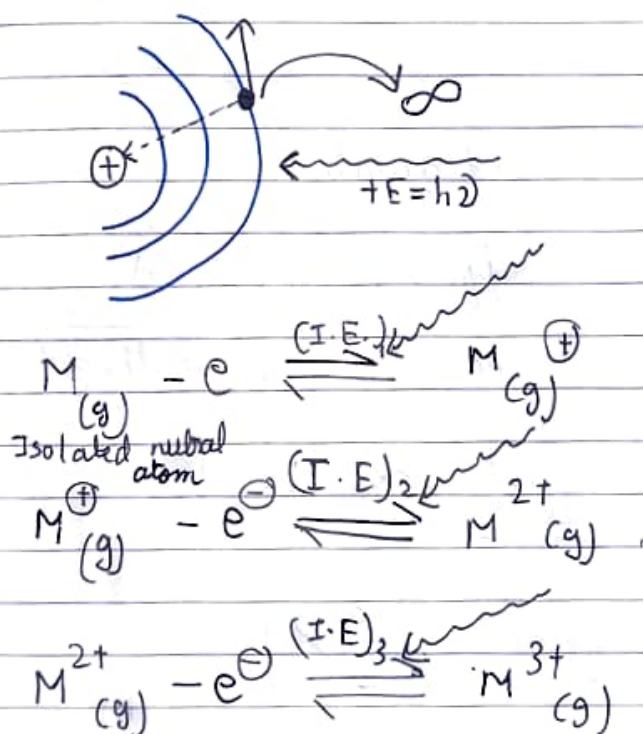 ∞
⊕
+E=hν
(I.E.)₁
M(g) - e ⇌ M⊕(g)
Isolated nutral
atom
M⊕(g) - e⊖ (I.E)₂ ⇌ M²⁺(g)
M²⁺(g) - e⊖ (I.E)₃ ⇌ M³⁺(g)